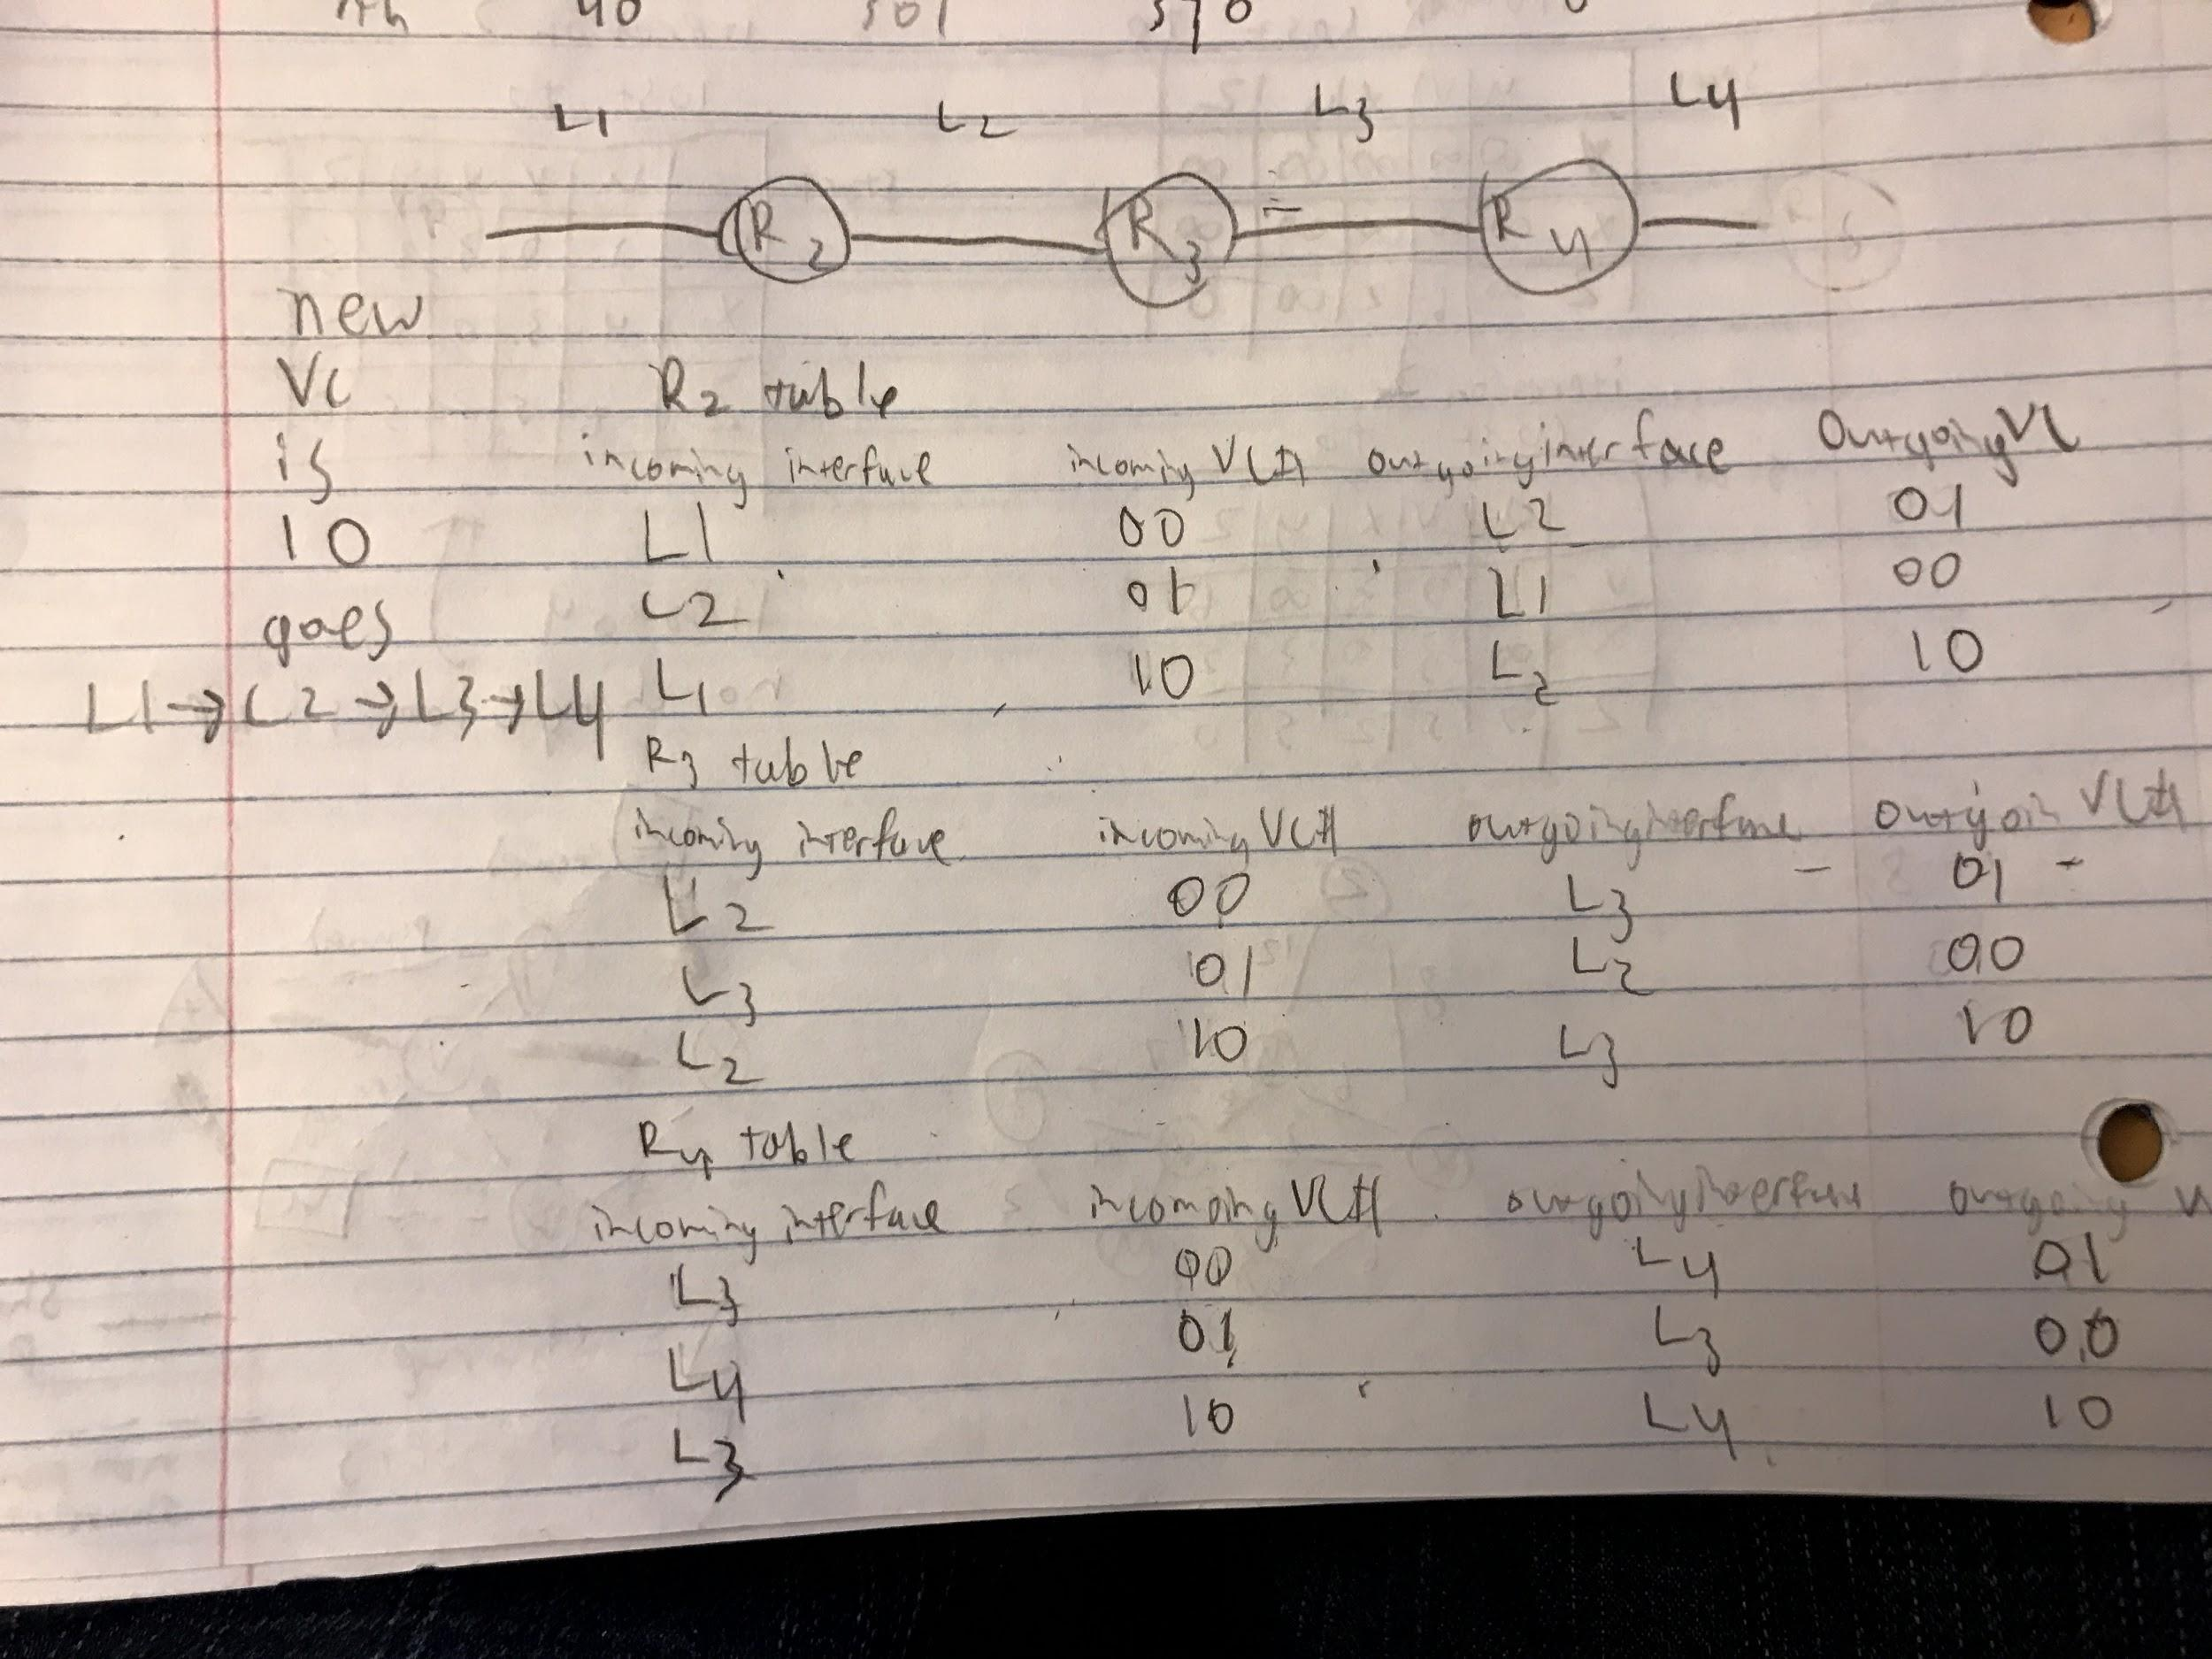 40 501 570
L1 L2 L3 L4
R2 R3 R4
new
VC
is
10
goes
L1→L2→L3→L4
R2 table
incoming interface incoming VC# outgoing interface Outgoing VC
L1 00 L2 01
L2 01 L1 00
L1 10 L2 10
R3 table
incoming interface incoming VC# outgoing interfance outgoin VC#
L2 00 L3 01
L3 01 L2 00
L2 10 L3 10
R4 table
incoming interface incomoing VC# outgoing interface outgoing V
L3 00 L4 01
L4 01 L3 00
L3 10 L4 10